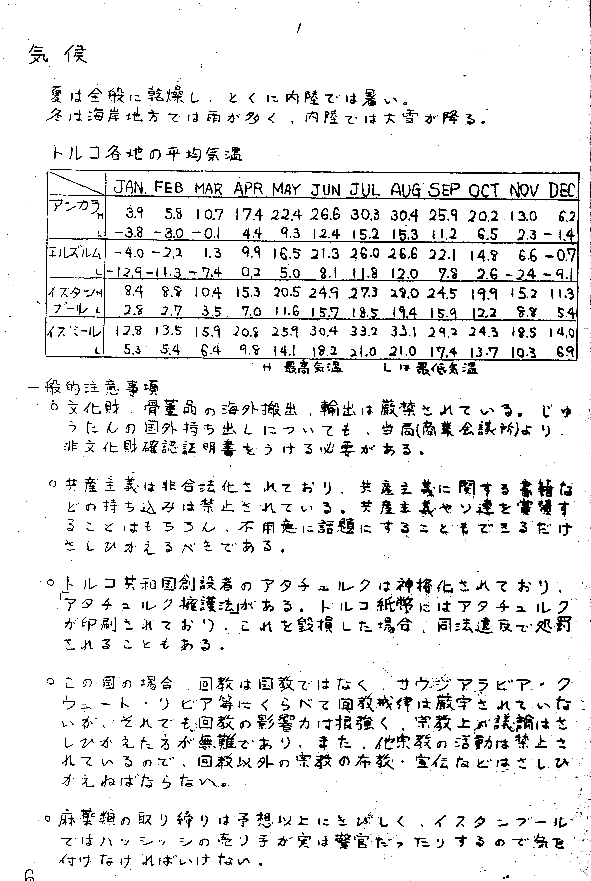 気候
夏は全般に乾燥し、とくに内陸では暑い。
冬は海岸地方では雨が多く、内陸では大雪が降る。
トルコ各地の平均気温
JAN. FEB MAR APR MAY JUN JUL AUG SEP OCT NOV DEC
アンカラ H 3.9 5.8 10.7 17.4 22.4 26.6 30.3 30.4 25.9 20.2 13.0 6.2
L -3.8 -3.0 -0.1 4.4 9.3 12.4 15.2 15.3 11.2 6.5 2.3 -1.4
エルズルム -4.0 -2.2 1.3 9.9 16.5 21.3 26.0 26.6 22.1 14.8 6.6 -0.7
L -12.9 -11.3 -7.4 0.2 5.0 8.1 11.8 12.0 7.8 2.6 -2.4 -9.1
イスタンH 8.4 8.8 10.4 15.3 20.5 24.9 27.3 28.0 24.5 19.9 15.2 11.3
ブール L 2.8 2.7 3.5 7.0 11.6 15.7 18.5 19.4 15.9 12.2 8.8 5.4
イズミール 12.8 13.5 15.9 20.8 25.9 30.4 33.2 33.1 29.2 24.3 18.5 14.0
L 5.3 5.4 6.4 9.8 14.1 18.2 21.0 21.0 17.4 13.7 10.3 6.9
H 最高気温 Lは最低気温
一般的注意事項
○文化財、骨董品の海外搬出、輸出は厳禁されている。じゅ
うたんの国外持ち出しについても、当局(商業会議所)より、
非文化財確認証明書をうける必要がある。
○共産主義は非合法化されており、共産主義に関する書籍な
どの持ち込みは禁止されている。共産主義やソ連を賞賛す
ることはもちろん、不用意に話題にすることもできるだけ
さしひかえるべきである。
○トルコ共和国創設者のアタチュルクは神格化されており、
「アタチュルク擁護法」がある。トルコ紙幣にはアタチュルク
が印刷されており、これを毀損した場合、同法違反で処罰
されることもある。
○この国の場合、回教は国教ではなく、サウジアラビア・ク
ウェート・リビア等にくらべて回教戒律は厳守されていな
いが、それでも回教の影響力は根強く、宗教上が議論はさ
しひかえた方が無難であり、また、他宗教の活動は禁止さ
れているので、回教以外の宗教の布教・宣伝などはさしひ
かえねばならない。
○麻薬類の取り締りは予想以上にきびしく、イスタンブール
ではハッシッシの売り子が実は警官だったりするので気を
付けなければいけない。
6